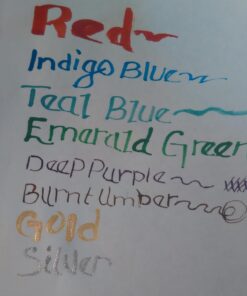 Red
Indigo Blue
Teal Blue
Emerald Green
Deep Purple
Burnt Umber
Gold
Silver